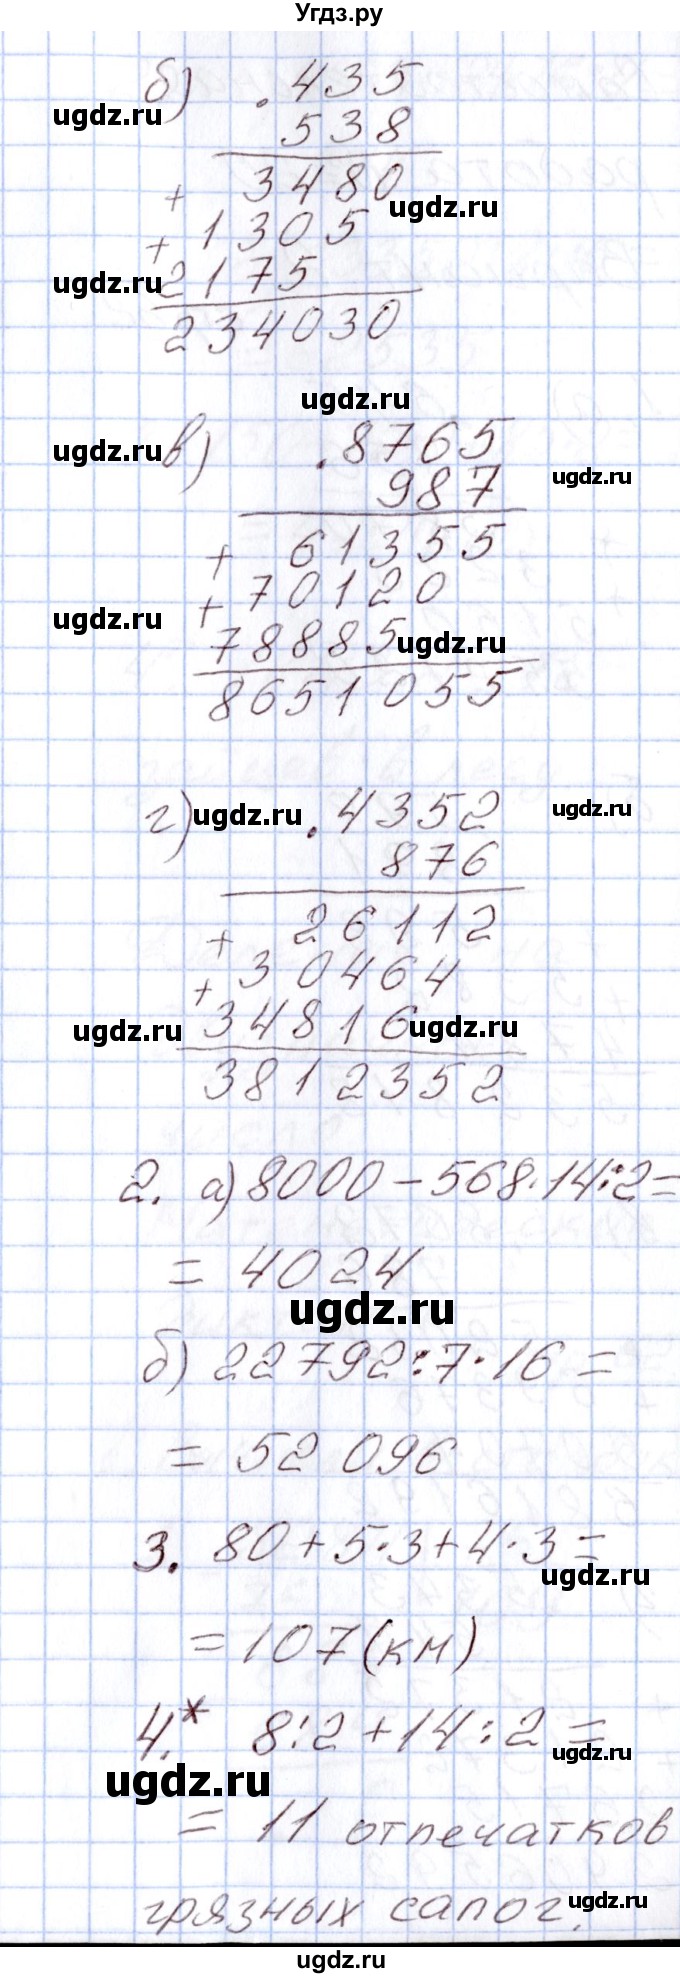 Угдз.ру
б) · 435
ugdz.ru
538
+ 3480
ugdz.ru
+ 1305
ugdz.ru
2175
234030
ugdz.ru
в) · 8765
ugdz.ru
987
ugdz.ru
+ 61355
+ 70120
ugdz.ru
78885
ugdz.ru
8651055
г) · 4352
ugdz.ru
ugdz.ru
876
+ 26112
+ 30464
34816
ugdz.ru
ugdz.ru
3812352
2. а) 8000 - 568·14:2=
= 4024
ugdz.ru
б) 22792:7·16=
= 52 096
3. 80+5·3+4·3=
ugdz.ru
= 107(км)
4.* 8:2+14:2=
ugdz.ru
ugdz.ru
= 11 отпечатков
грязных сапог.
ugdz.ru
ugdz.ru